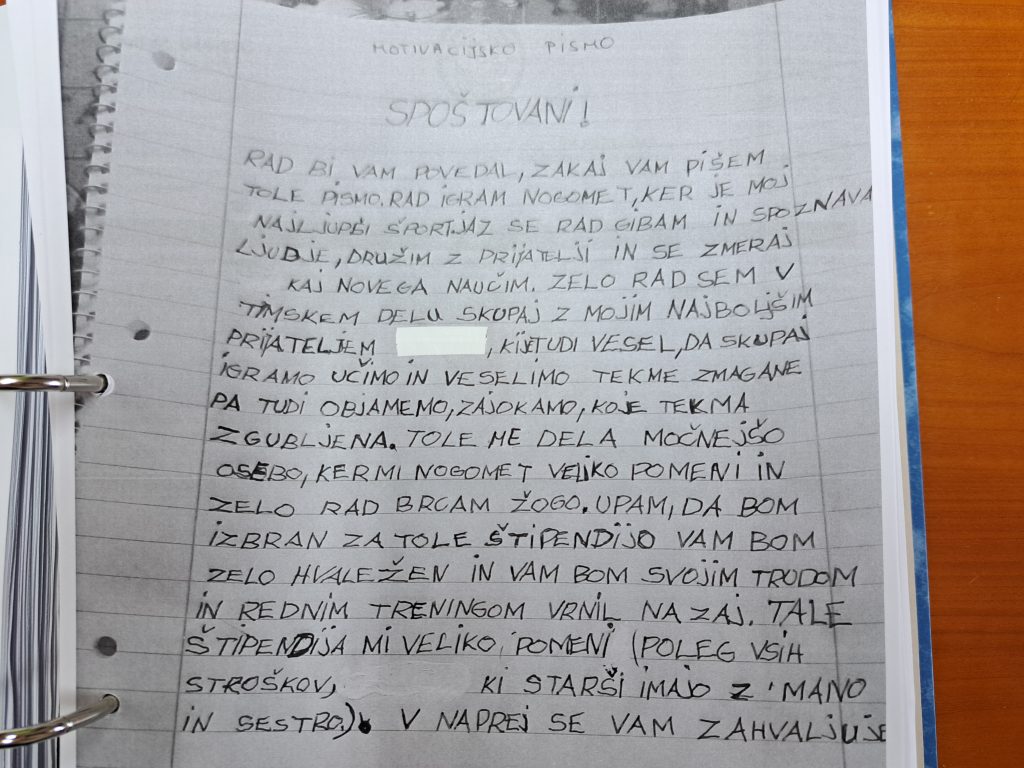 MOTIVACIJSKO PISMO
SPOŠTOVANI!
RAD BI VAM POVEDAL, ZAKAJ VAM PIŠEM
TOLE PISMO. RAD IGRAM NOGOMET, KER JE MOJ
NAJLJUPŠI ŠPORT. JAZ SE RAD GIBAM IN SPOZNAVA
LJUDJE, DRUŽIM Z PRIJATELJI IN SE ZMERAJ
KAJ NOVEGA NAUČIM. ZELO RAD SEM V
TIMSKEM DELU SKUPAJ Z MOJIM NAJBOLJŠIM
PRIJATELJEM , KI JE TUDI VESEL, DA SKUPAJ
IGRAMO UČIMO IN VESELIMO TEKME ZMAGANE
PA TUDI OBJAMEMO, ZAJOKAMO, KO JE TEKMA
ZGUBLJENA. TOLE ME DELA MOČNEJŠO
OSEBO, KER MI NOGOMET VELIKO POMENI IN
ZELO RAD BRCAM ŽOGO. UPAM, DA BOM
IZBRAN ZA TOLE ŠTIPENDIJO VAM BOM
ZELO HVALEŽEN IN VAM BOM SVOJIM TRUDOM
IN REDNIM TRENINGOM VRNIL NAZAJ. TALE
ŠTIPENDIJA MI VELIKO POMENI (POLEG VSIH
STROŠKOV, KI STARŠI IMAJO Z MANO
IN SESTRO.). V NAPREJ SE VAM ZAHVALJUJE